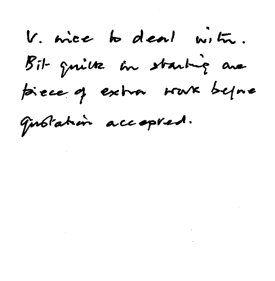 V. nice to deal with.
Bit quick in starting one
piece of extra work before
quotation accepted.